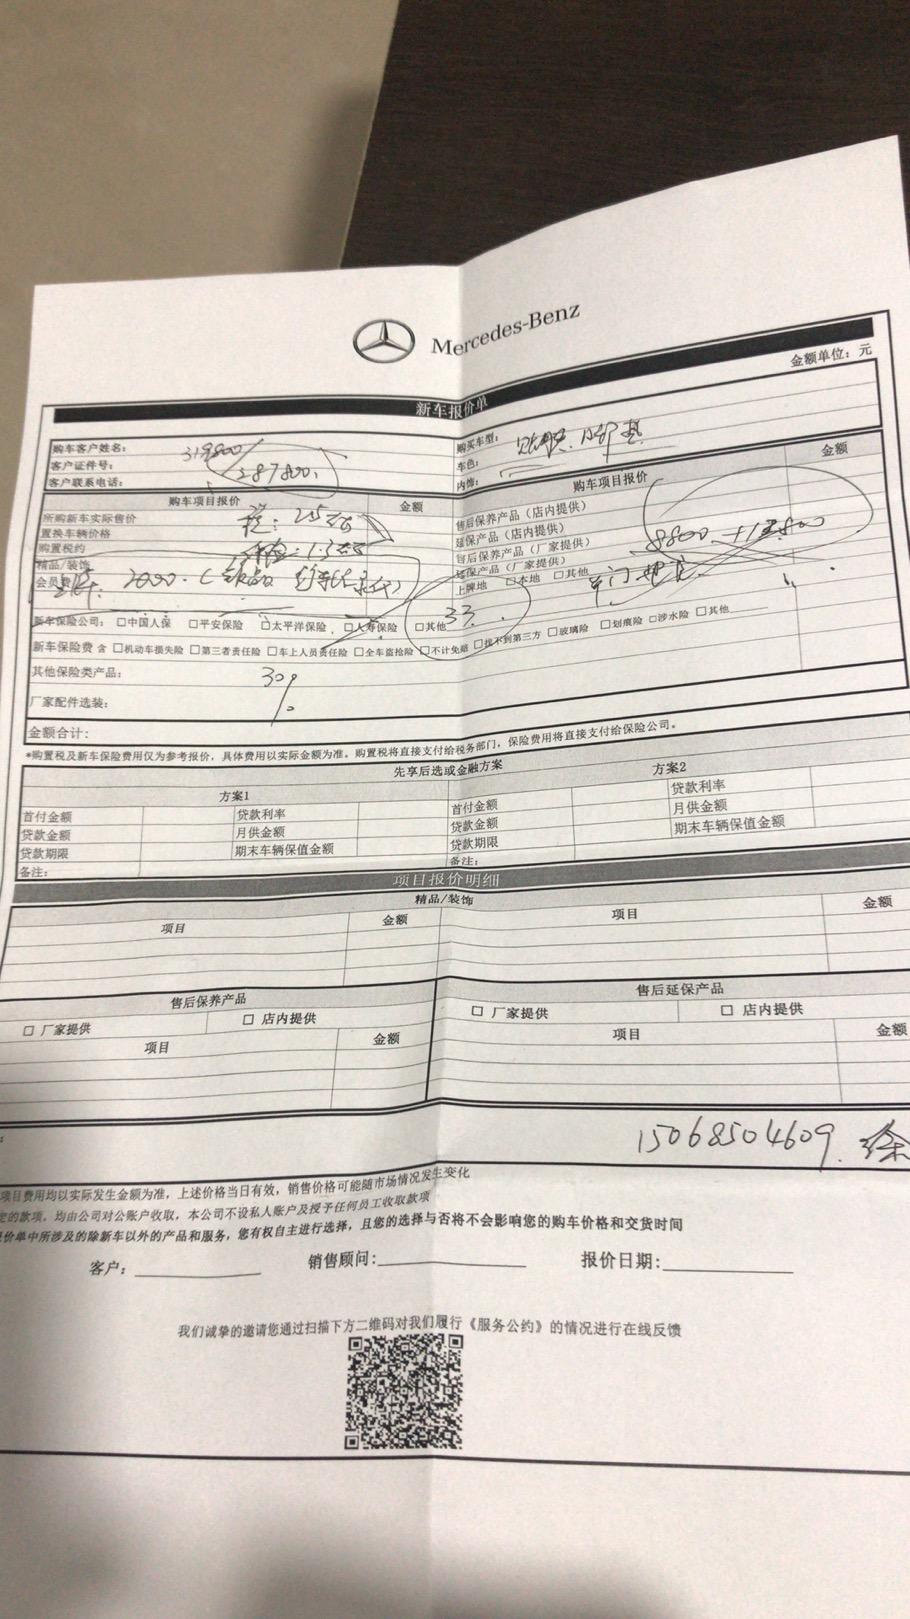 Mercedes-Benz
金额单位：元
新车报价单
购车客户姓名：
319800/
购买车型：
贴膜.脚垫
客户证件号：
287800.
车色：
客户联系电话：
内饰：
购车项目报价
金额
购车项目报价
金额
所购新车实际售价
税：
售后保养产品（店内提供）
置换车辆价格
延保产品（店内提供）
购置税约
售后保养产品（厂家提供）
8800.+13800
精品/装饰
延保产品（厂家提供）
会员费
2000.
上牌地 □本地 □其他
33.
新车保险公司： □中国人保 □平安保险 □太平洋保险 □人寿保险 □其他
新车保险费 含 □机动车损失险 □第三者责任险 □车上人员责任险 □全车盗抢险 □不计免赔 □找不到第三方 □玻璃险 □划痕险 □涉水险 □其他
其他保险类产品：
厂家配件选装：
金额合计：
*购置税及新车保险费用仅为参考报价，具体费用以实际金额为准。购置税将直接支付给税务部门，保险费用将直接支付给保险公司。
先享后选或金融方案
方案1
方案2
首付金额
贷款利率
首付金额
贷款利率
贷款金额
月供金额
贷款金额
月供金额
贷款期限
期末车辆保值金额
贷款期限
期末车辆保值金额
备注：
备注：
项目报价明细
精品/装饰
项目
金额
项目
金额
售后保养产品
售后延保产品
□ 厂家提供
□ 店内提供
□ 厂家提供
□ 店内提供
项目
金额
项目
金额
15068504609. 徐
项目费用均以实际发生金额为准，上述价格当日有效，销售价格可能随市场情况发生变化
定的款项，均由公司对公账户收取，本公司不设私人账户及授予任何员工收取款项
价单中所涉及的除新车以外的产品和服务，您有权自主进行选择，且您的选择与否将不会影响您的购车价格和交货时间
客户：
销售顾问：
报价日期：
我们诚挚的邀请您通过扫描下方二维码对我们履行《服务公约》的情况进行在线反馈